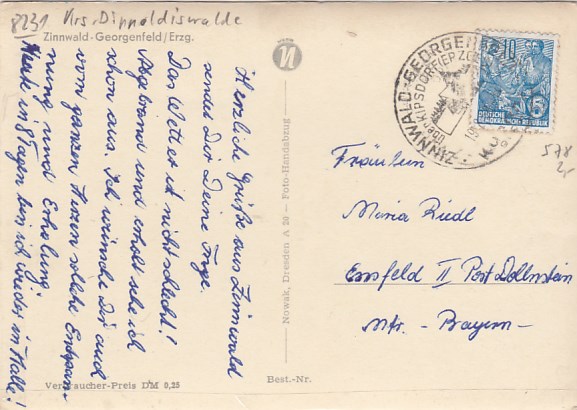 8231 Krs. Dippoldiswalde
Zinnwald-Georgenfeld/Erzg.
Herzliche Grüße aus Zinnwald
sendet Dir Deine Inge.
Das Wetter ist nicht schlecht!
Abgebrannt und erholt sehe ich
schon aus. Ich wünsche Dir auch
vom ganzen Herzen solche Entspan-
nung und Erholung!
Heute in 8 Tagen bin ich wieder in Halle!
Verbraucher-Preis DM 0,25
Best.-Nr.
Nowak, Dresden A 20 — Foto-Handabzug —
ZINNWALD-GEORGENFELD
über KIPSDORF (ERZGEB)
10
5
DEUTSCHE
DEMOKRATISCHE REPUBLIK
578
Fräulein
Maria Riedl
Ensfeld II Post Dollnstein
Mfr. - Bayern -